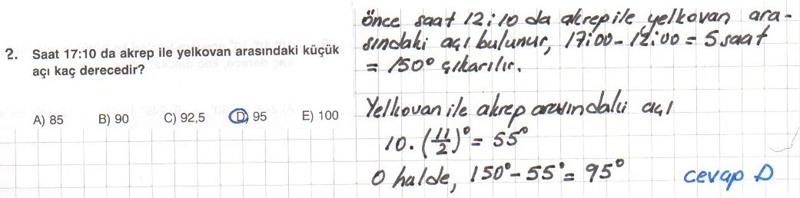 2. Saat 17:10 da akrep ile yelkovan arasındaki küçük
açı kaç derecedir?
A) 85 B) 90 C) 92,5 D) 95 E) 100
önce saat 12:10 da akrep ile yelkovan ara-
sındaki açı bulunur, 17:00-12:00 = 5 saat
= 150° çıkarılır.
Yelkovan ile akrep arasındaki açı
10. (11/2)° = 55°
O halde, 150° - 55° = 95° cevap D